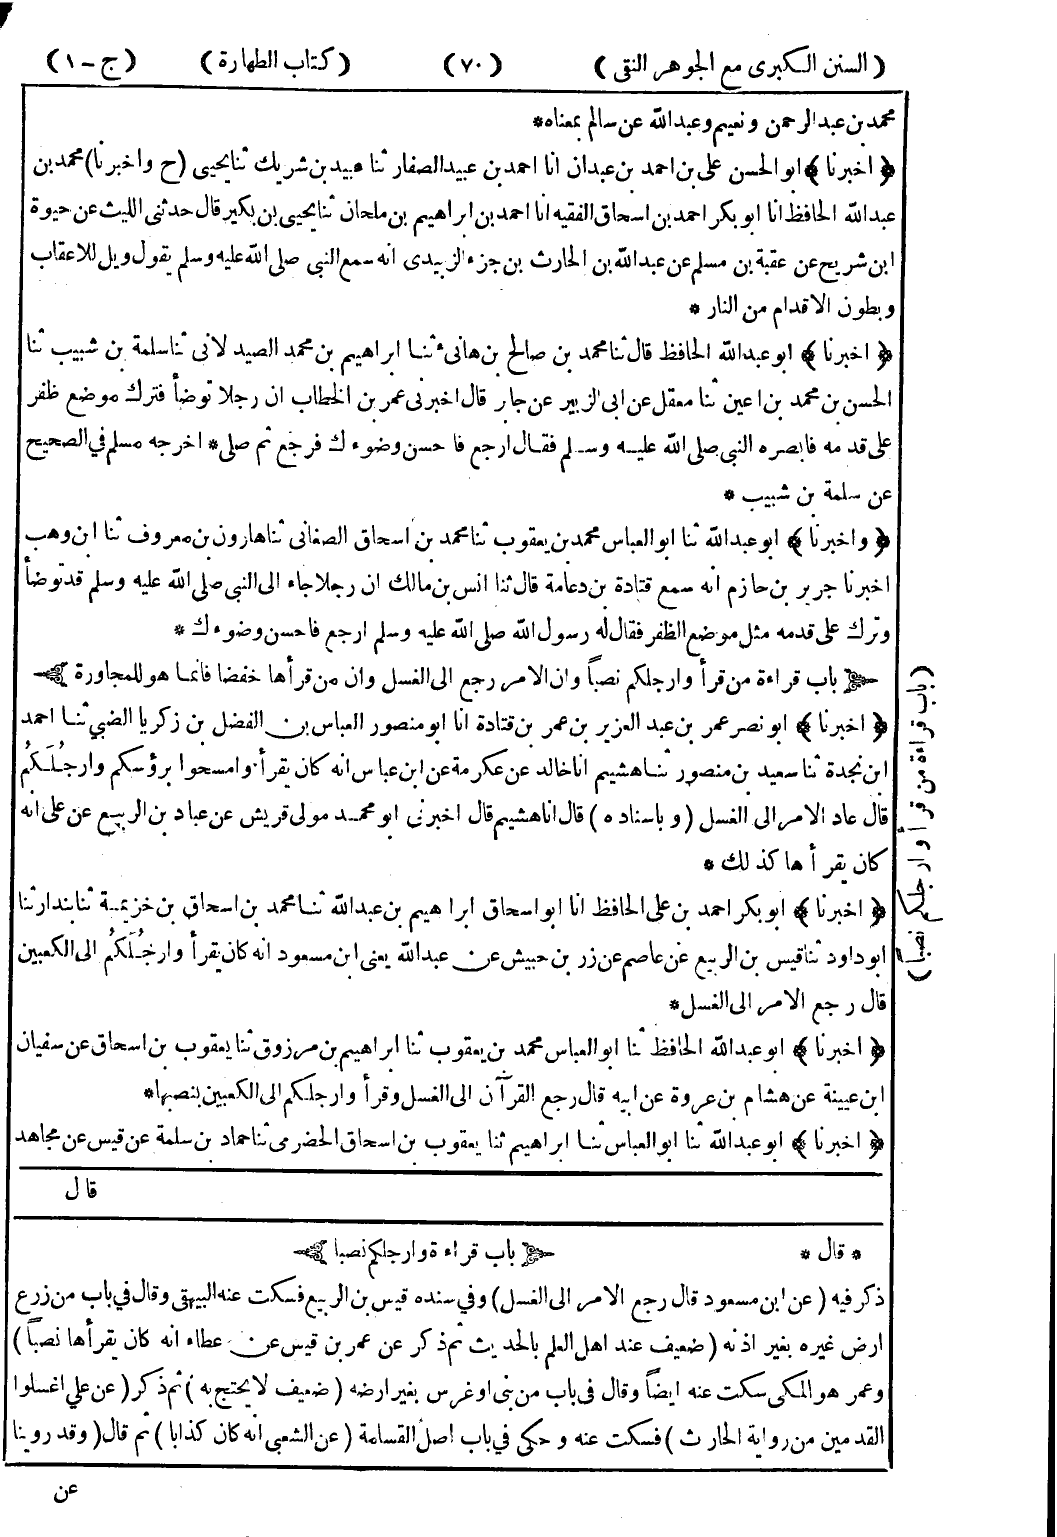 ( السنن الكبرى مع الجوهر النقى ) (٧٠) ( كتاب الطهارة ) ( ج - ١ )
محمد بن عبد الرحمن ونعيم وعبد الله عن سالم بمعناه *
﴿ اخبرنا ﴾ ابو الحسن على بن احمد بن عبدان انا احمد بن عبيد الصفار ثنا عبيد بن شريك ثنا يحيى (ح واخبرنا) محمد بن
عبد الله الحافظ انا ابو بكر احمد بن اسحاق الفقيه انا احمد بن ابراهيم بن ملحان ثنا يحيى بن بكير قال حدثنى الليث عن حيوة
ابن شريح عن عقبة بن مسلم عن عبد الله بن الحارث بن جزء الزبيدى انه سمع النبى صلى الله عليه وسلم يقول ويل للاعقاب
وبطون الاقدام من النار *
﴿ اخبرنا ﴾ ابو عبد الله الحافظ قال ثنا محمد بن صالح بن هانىء ثنا ابراهيم بن محمد الصيدلانى ثنا سلمة بن شبيب ثنا
الحسن بن محمد بن اعين ثنا معقل عن ابى الزبير عن جابر قال اخبرنى عمر بن الخطاب ان رجلا توضأ فترك موضع ظفر
على قدمه فابصره النبى صلى الله عليه وسلم فقال ارجع فاحسن وضوءك فرجع ثم صلى * اخرجه مسلم في الصحيح
عن سلمة بن شبيب *
﴿ واخبرنا ﴾ ابو عبد الله ثنا ابو العباس محمد بن يعقوب ثنا محمد بن اسحاق الصغانى ثنا هارون بن معروف ثنا ابن وهب
اخبرنا جرير بن حازم انه سمع قتادة بن دعامة قال ثنا انس بن مالك ان رجلا جاء الى النبى صلى الله عليه وسلم قد توضأ
وترك على قدمه مثل موضع الظفر فقال له رسول الله صلى الله عليه وسلم ارجع فاحسن وضوءك *
﴿ باب قراءة من قرأ وارجلكم نصباً وان الامر رجع الى الغسل وان من قرأها خفضا فانما هو للمجاورة ﴾
﴿ اخبرنا ﴾ ابو نصر عمر بن عبد العزيز بن عمر بن قتادة انا ابو منصور العباس بن الفضل بن زكريا الضبي ثنا احمد
ابن نجدة ثنا سعيد بن منصور ثنا هشيم انا خالد عن عكرمة عن ابن عباس انه كان يقرأ وامسحوا برؤسكم وارجُلَكُم
قال عاد الامر الى الغسل ( وباسناده ) قال انا هشيم قال اخبرنى ابو محمد مولى قريش عن عباد بن الربيع عن على انه
كان يقرأها كذلك *
﴿ اخبرنا ﴾ ابو بكر احمد بن على الحافظ انا ابو اسحاق ابراهيم بن عبد الله ثنا محمد بن اسحاق بن خزيمة ثنا بندار ثنا
ابو داود ثنا قيس بن الربيع عن عاصم عن زر بن حبيش عن عبد الله يعنى ابن مسعود انه كان يقرأ وارجُلَكُم الى الكعبين
قال رجع الامر الى الغسل *
﴿ اخبرنا ﴾ ابو عبد الله الحافظ ثنا ابو العباس محمد بن يعقوب ثنا ابراهيم بن مرزوق ثنا يعقوب بن اسحاق عن سفيان
ابن عيينة عن هشام بن عروة عن ابيه قال رجع القرآن الى الغسل وقرأ وارجلكم الى الكعبين بنصبها *
﴿ اخبرنا ﴾ ابو عبد الله ثنا ابو العباس ثنا ابراهيم ثنا يعقوب بن اسحاق الحضرمى ثنا حماد بن سلمة عن قيس عن مجاهد
قال
( باب قراءة من قرأ وارجلكم نصباً )
* قال * ﴿ باب قراءة وارجلكم نصبا ﴾
ذكر فيه ( عن ابن مسعود قال رجع الامر الى الغسل ) وفي سنده قيس بن الربيع فسكت عنه البيهقى وقال في باب من زرع
ارض غيره بغير اذنه ( ضعيف عند اهل العلم بالحديث ثم ذكر عن عمر بن قيس عن عطاء انه كان يقرأها نصباً )
وعمر هو المكى سكت عنه ايضاً وقال فى باب من بنى او غرس بغير ارضه ( ضعيف لا يحتج به ) ثم ذكر ( عن علي اغسلوا
القدمين من رواية الحارث ) فسكت عنه وحكى في باب اصل القسامة ( عن الشعبى انه كان كذابا ) ثم قال ( وقد روينا
عن